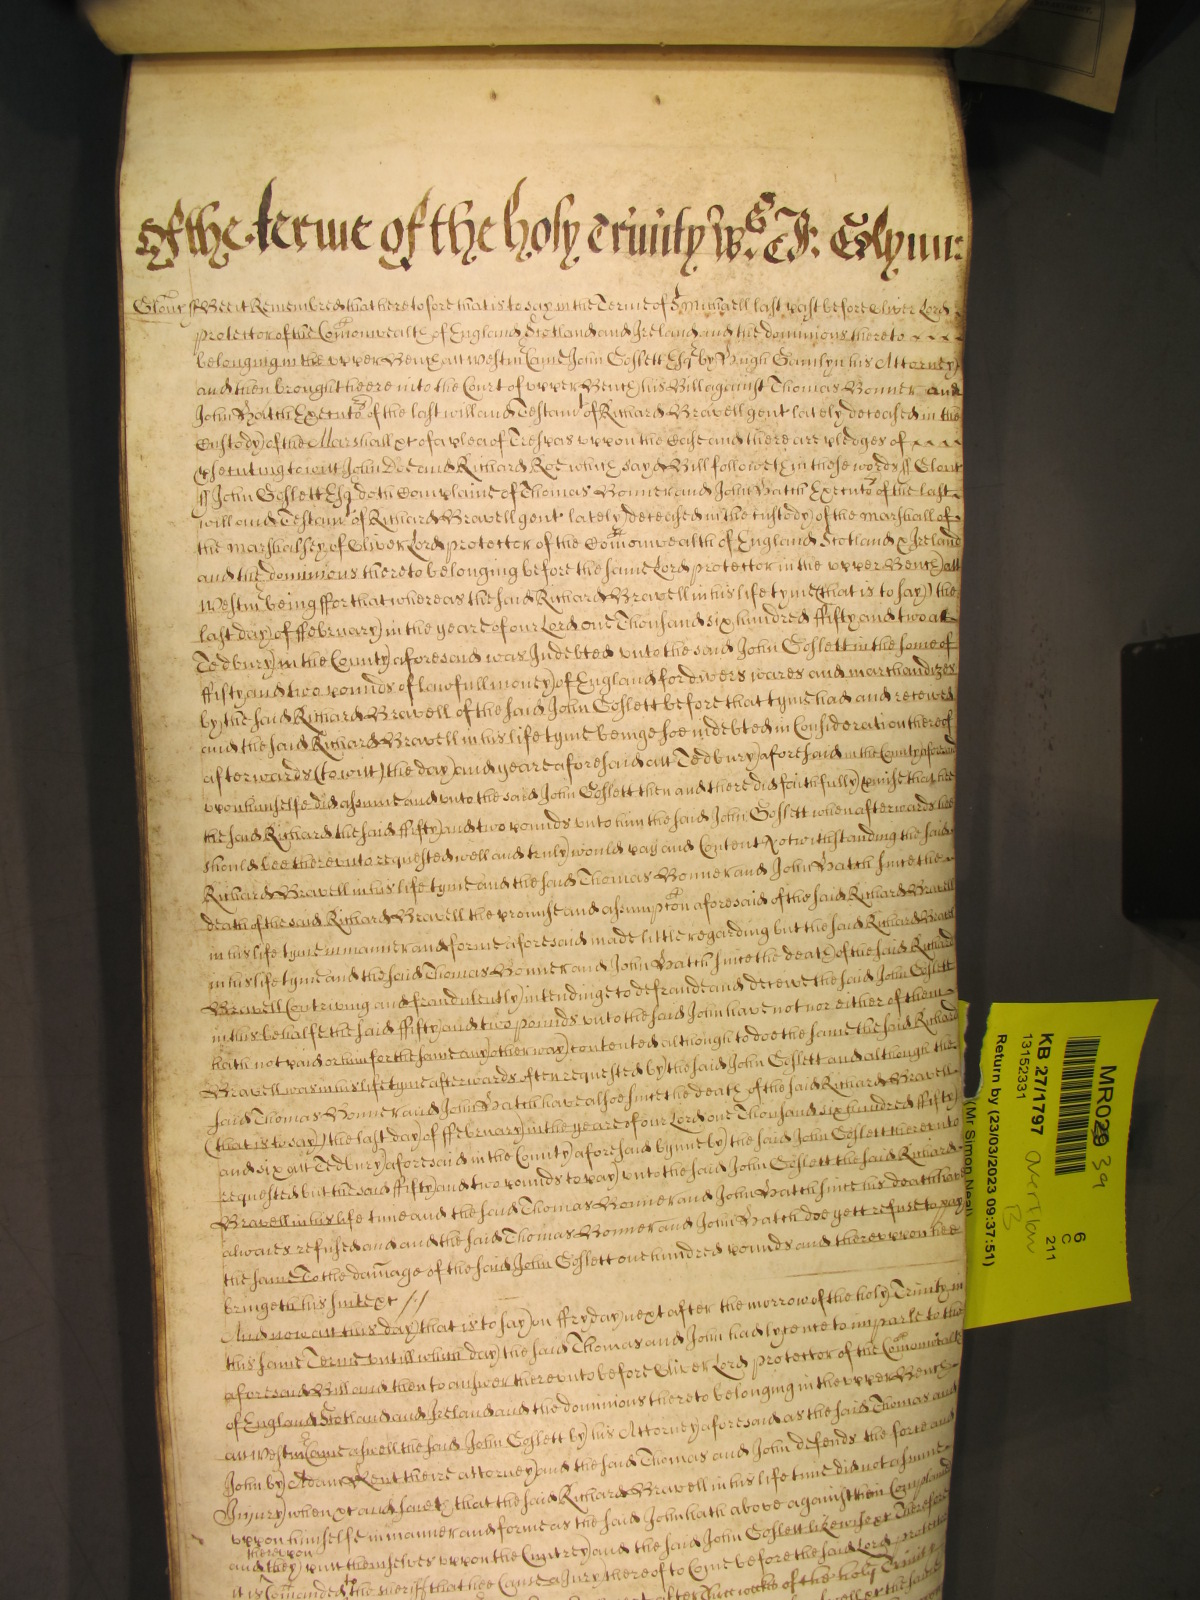 Of the terme of the holy Trinity W.S J: Glynn:
Glouc ss Bee it Remembred that heretofore that is to say in the Terme of St Michaell last past before Oliver Lord
Protector of the Comonwealth of England Scotland and Ireland and the dominions thereto
belonging in the upper Bench att Westm Came John Goslett Esq by Hugh Hamlyn his Attorney
and then brought heere into the Court of upper Bench his Bill against Thomas Bonner and
John Hatch Executors of the last will and Testamt of Richard Bravell gent lately deceased in the
Custody of the Marshall &c of a plea of Trespas uppon the Case and there are pledges of
psecuting to witt John Doe and Richard Roe which sayd Bill followeth in these words ss Glouc
ss John Goslett Esq doth Complaine of Thomas Bonner and John Hatch Executors of the last
will and Testamt of Richard Bravell gent lately deceased in the custody of the Marshall of
the Marshalsey of Oliver Lord protector of the Comonwealth of England Scotland & Ireland
and the dominions thereto belonging before the same Lord protector in the upper Bench att
Westm being ffor that whereas the said Richard Bravell in his life tyme (that is to say) the
last day of ffebruary in the yeare of our Lord one Thousand six hundred ffifty and two att
Tedbury in the County aforesaid was Indebted unto the said John Goslett in the some of
ffifty and two pounds of lawfull money of England for divers wares and marchandizes
by the said Richard Bravell of the said John Goslett before that tyme had and receved
and the said Richard Bravell in his life tyme beinge soe indebted in Consideration thereof
afterwards (to witt) the day and yeare aforesaid att Tedbury aforesaid in the County aforesaid
upon himselfe did assume and unto the said John Goslett then and there did faithfully pmise that hee
the said Richard the said ffifty and two pounds unto him the said John Goslett when afterwards hee
should bee thereunto requested well and truly would pay and Content Notwithstanding the said
Richard Bravell in his life tyme and the said Thomas Bonner and John Hatch since the
death of the said Richard Bravell the promise and assumption aforesaid of the said Richard Bravell
in his life tyme in manner and forme aforesaid made little regarding but the said Richard Bravell
in his life tyme and the said Thomas Bonner and John Hatch since the death of the said Richard
Bravell Contriving and fraudulently intendinge to defraude and deceve the said John Goslett
in this behalfe the said ffifty and two pounds unto the said John have not nor either of them
hath not paid or him for the same any other way contented although to doe the same the said Richard
Bravell was in his life tyme afterwards often requested by the said John Goslett and although the
said Thomas Bonner and John Hatch have alsoe since the death of the said Richard Bravell
(that is to say) the last day of ffebruary in the yeare of our Lord one Thousand six hundred ffifty
and six att Tedbury aforesaid in the County aforesaid bynne by the said John Goslett thereunto
requested but the said ffifty and two pounds to pay unto the said John Goslett the said Richard
Bravell in his life time and the said Thomas Bonner and John Hatch since his death have
alwaies refused and the said Thomas Bonner and John Hatch doe yett refuse to pay
the same To the damage of the said John Goslett one hundred pounds and thereuppon hee
bringeth his suite &c
And now att this day that is to say on ffryday next after the morrow of the holy Trinity in
this same Terme untill which day the said Thomas and John had lycence to imparle to the
aforesaid Bill and then to answer thereunto before Oliver Lord protector of the Comonwealth
of England Scotland and Ireland and the dominions thereto belonging in the upper Bench
att Westm Came aswell the said John Goslett by his Attorney aforesaid as the said Thomas and
John by Kent theire attorney and the said Thomas and John defends the force and
Injury when &c and saieth that the said Richard Bravell in his life time did not assume
uppon himselfe in manner and forme as the said John hath above against them Complained
and thereuppon they putt themselves uppon the Cuntrey and the said John Goslett likewise &c Therefore
it is Comanded the sheriff that hee Cause a Jury thereof to Come before the said Lord protector
after three weekes of the holy Trinity
MR029
6
C
211
KB 27/1797
13152331
Overflow
B
Return by (23/03/2023 09:37:51)
(Mr Simon Neal)